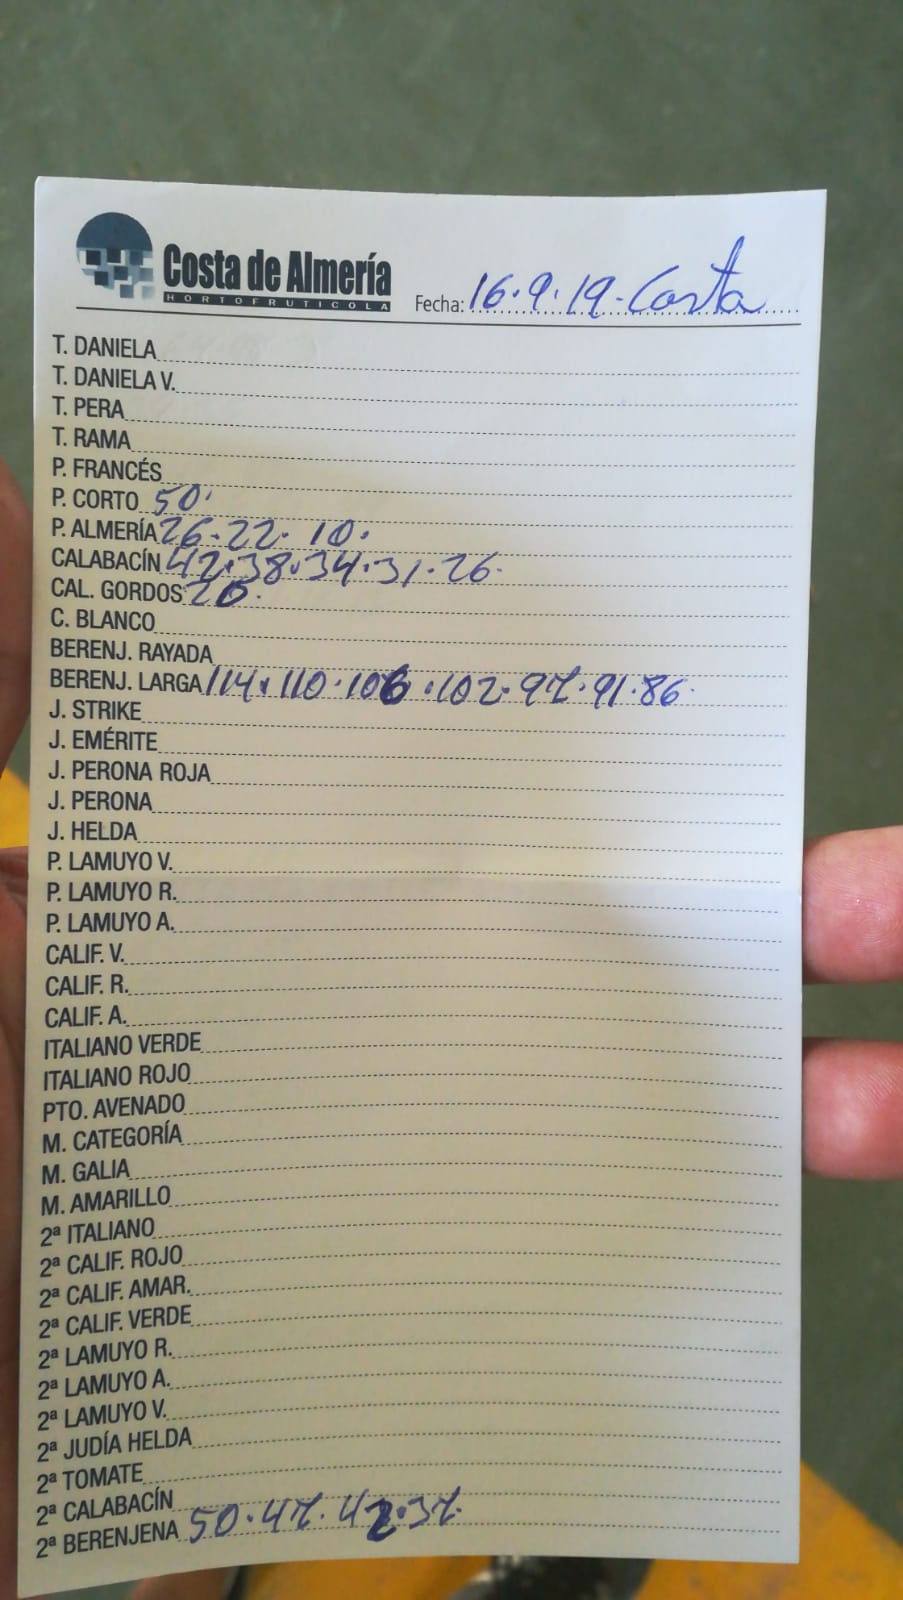 Costa de Almería
HORTOFRUTICOLA
Fecha: 16.9.19. Costa
T. DANIELA
T. DANIELA V.
T. PERA
T. RAMA
P. FRANCÉS
P. CORTO 50.
P. ALMERÍA 26.22. 10.
CALABACÍN 42.38.34.31.26.
CAL. GORDOS 20.
C. BLANCO
BERENJ. RAYADA
BERENJ. LARGA 114.110.106.102.97.91.86.
J. STRIKE
J. EMÉRITE
J. PERONA ROJA
J. PERONA
J. HELDA
P. LAMUYO V.
P. LAMUYO R.
P. LAMUYO A.
CALIF. V.
CALIF. R.
CALIF. A.
ITALIANO VERDE
ITALIANO ROJO
PTO. AVENADO
M. CATEGORÍA
M. GALIA
M. AMARILLO
2ª ITALIANO
2ª CALIF. ROJO
2ª CALIF. AMAR.
2ª CALIF. VERDE
2ª LAMUYO R.
2ª LAMUYO A.
2ª LAMUYO V.
2ª JUDÍA HELDA
2ª TOMATE
2ª CALABACÍN
2ª BERENJENA 50.47.42.37.